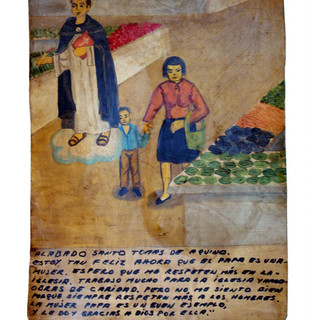 "ALABADO SANTO TOMAS DE AQUINO.
ESTOY TAN FELIZ AHORA QUE EL PAPA ES UNA
MUJER. ESPERO QUE ME RESPETEN MÁS EN LA
IGLESIA. TRABAJO MUCHO PARA LA IGLESIA Y HAGO
OBRAS DE CARIDAD, PERO NO ME SIENTO BIEN
PORQUE SIEMPRE RESPETAN MAS A LOS HOMBRES.
LA MUJER PAPA ES UN BUEN EJEMPLO,
Y LE DOY GRACIAS A DIOS POR ELLA."